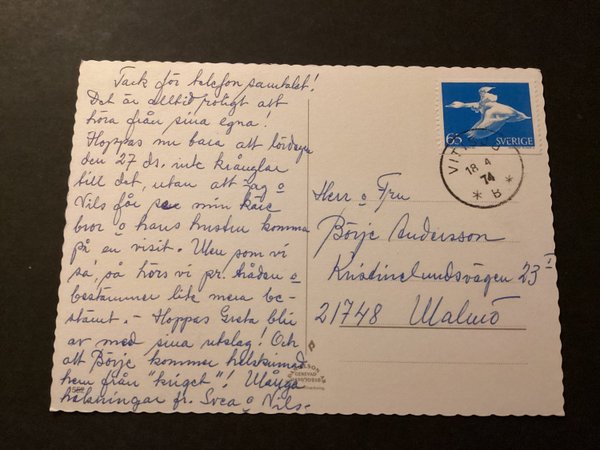 Tack för telefonsamtalet!
Det är alltid roligt att
höra från sina egna!
Hoppas nu bara att lördagen
den 27 ds. inte krånglar
till det, utan att jag o
Nils får se min käre
bror o hans hustru komma
på en visit. Men som vi
sa', så hörs vi pr. tråden o
bestämmer lite mera be-
stämt. - Hoppas Greta blir
av med sina utslag! Och
att Börje kommer helskinnad
hem från "kriget"! Många
hälsningar fr. Svea o Nils.
65 SVERIGE
18 4
74
* B *
Herr o Fru
Börje Andersson
Kristinelundsvägen 23 I
21748 Malmö